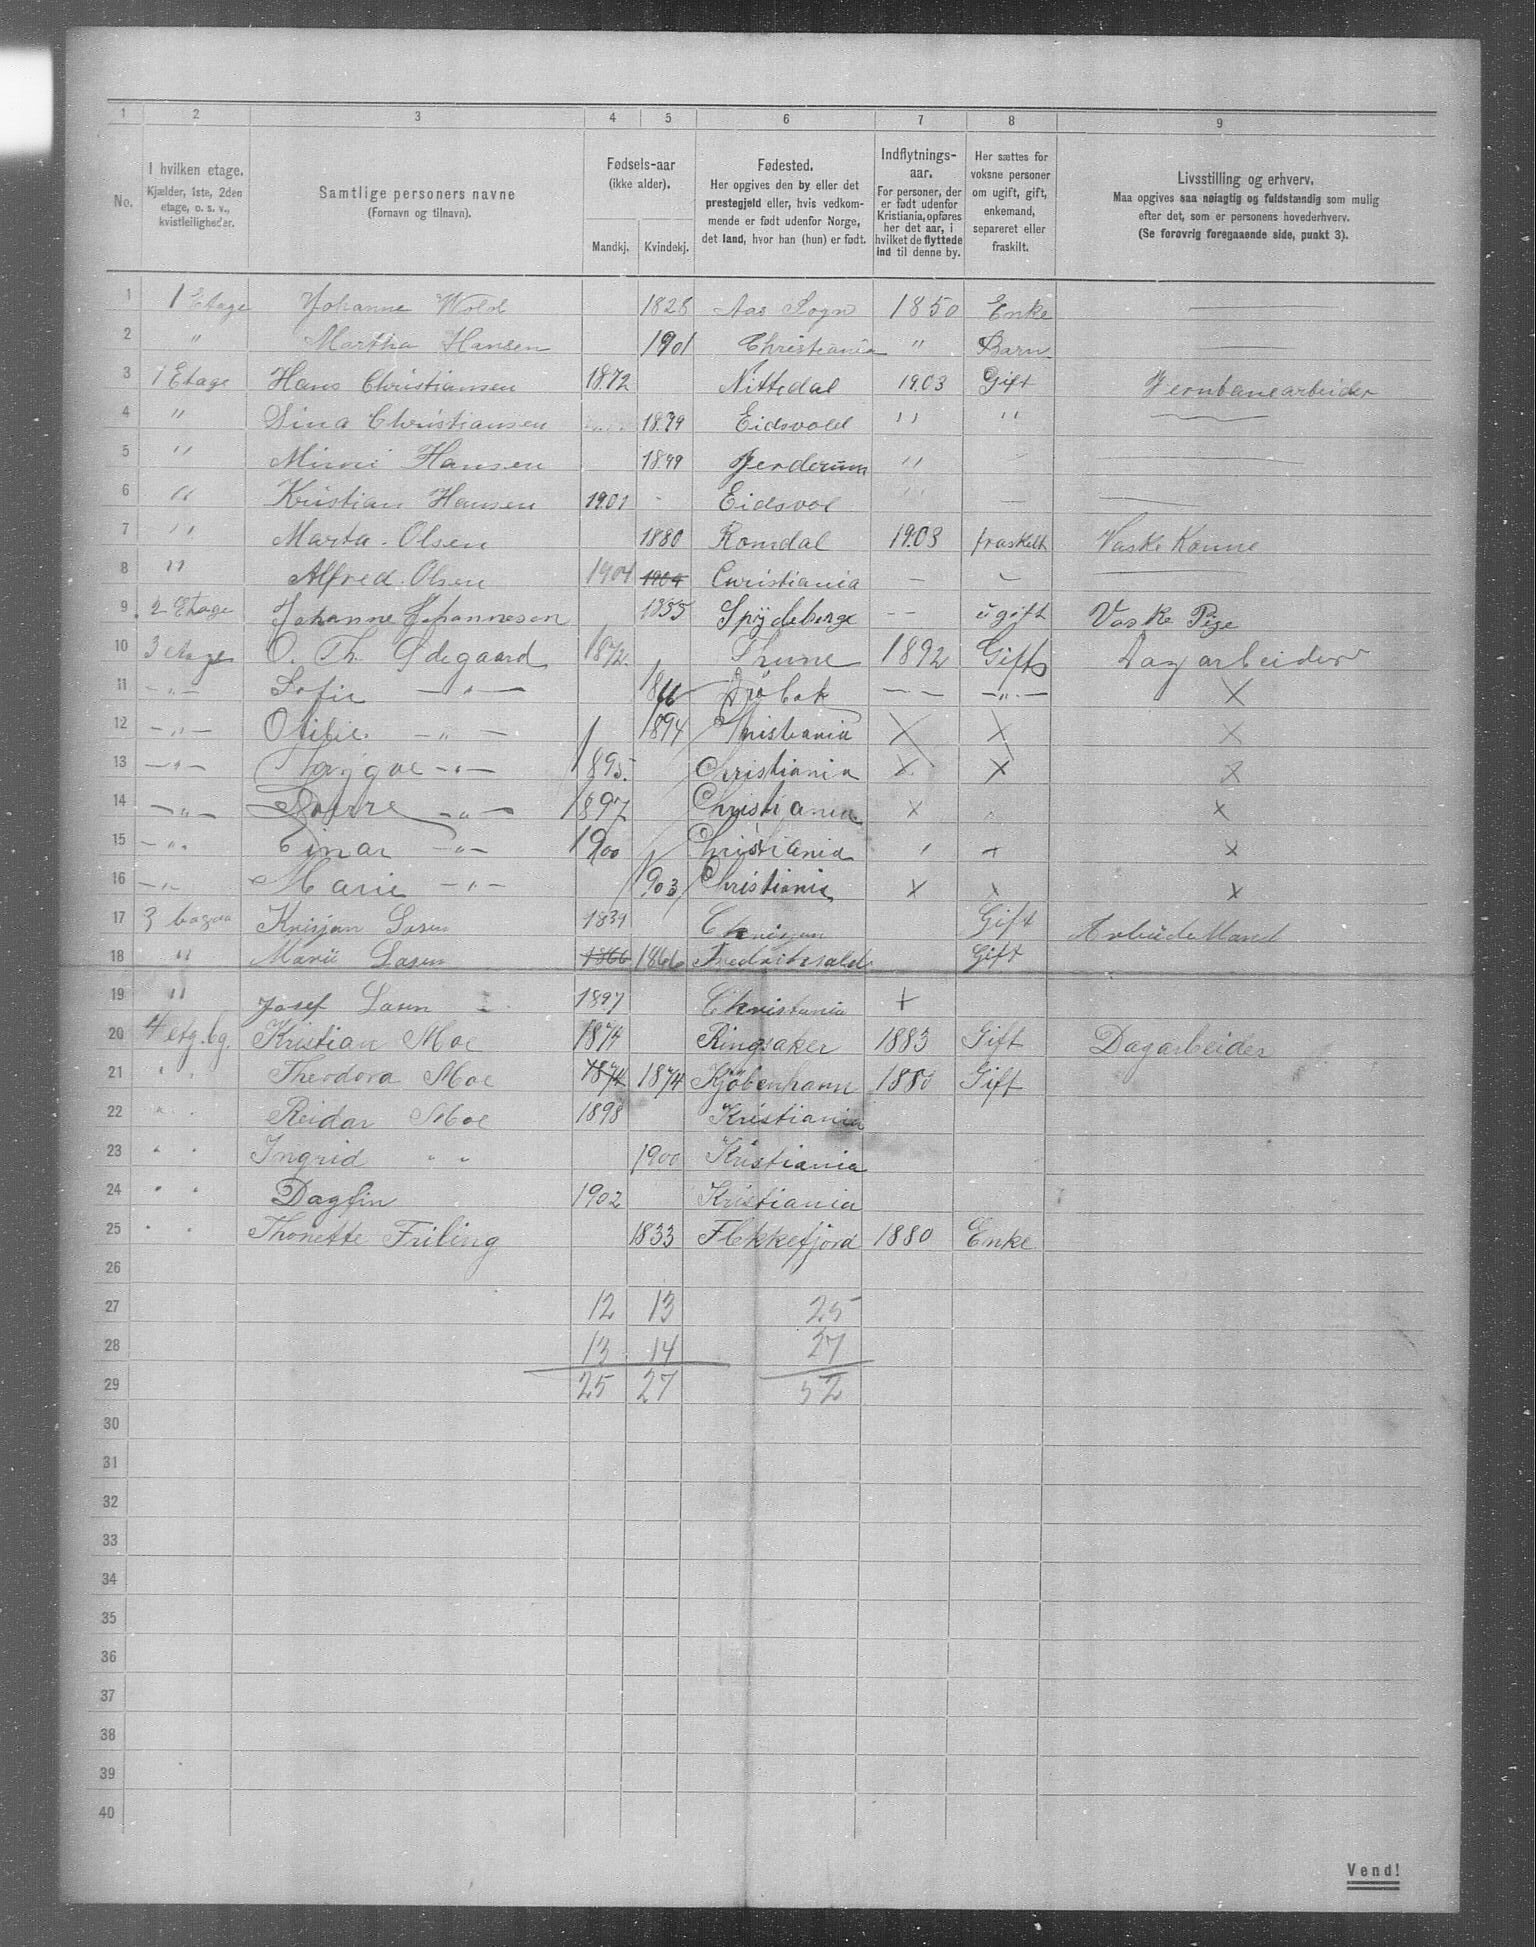 1 2 3 4 5 6 7 8 9
No.
I hvilken etage.
Kjælder, 1ste, 2den
etage, o. s. v.,
kvistleiligheder.
Samtlige personers navne
(Fornavn og tilnavn).
Fødsels-aar
(ikke alder).
Mandkj. Kvindekj.
Fødested.
Her opgives den by eller det
prestegjeld eller, hvis vedkom-
mende er født udenfor Norge,
det land, hvor han (hun) er født.
Indflytnings-
aar.
For personer, der
er født udenfor
Kristiania, opføres
her det aar, i
hvilket de flyttede
ind til denne by.
Her sættes for
voksne personer
om ugift, gift,
enkemand,
separeret eller
fraskilt.
Livsstilling og erhverv.
Maa opgives saa nøiagtig og fuldstændig som mulig
efter det, som er personens hovederhverv.
(Se forøvrig foregaaende side, punkt 3).
1 1 Etage Johanne Wold 1828 Aas Sogn 1850 Enke —
2 " Martha Hansen 1901 Christiania " Barn —
3 1 Etage Hans Christiansen 1872 Nittedal 1903 Gift Jernbanearbeider
4 " Sina Christiansen Eidsvold " " —
5 " Mimi Hansen 1899 Jerderum " —
6 " Kristian Hansen 1901 - Eidsvol " — —
7 " Marta Olsen 1880 Romdal 1903 fraskelt Vaske Konne
8 " Alfred Olsen 1904 1904 Christiania — — —
9 2 Etage Johanne Johannesen 1855 Spydeberge -- ugift Vaske Pige
10 3 etage O. Th. Ødegaard 1872. 1892 Gift Dagarbeider
11 —"— Sofie —"— 1866 Drøbak —"— —"— X
12 —"— Otilie —"— 1894 Christiania X X X
13 —"— Trygve —"— 1895. Christiania X X X
14 —"— Sverre —"— 1897 Christiania X " X
15 —"— Einar —"— 1900 Christiania " + X
16 —"— Marie —"— 1903 Christiania X X X
17 3 bagaa Krisjan Lasen 1839 Gift Arbeide Mand
18 " Marie Lasen 1866 1866 Fredrikshald Gift
19 " Josef Lasen - 1897 Christiania +
20 4 etg. bg. Kristian Moe 1874 Ringsaker 1883 Gift Dagarbeider
21 " " Theodora Moe 1874 1874 Kjøbenhavn 1880 Gift
22 " " Reidar Moe 1898 Kristiania
23 " " Ingrid " " 1900 Kristiania
24 " " Dagfin 1902 Kristiania
25 " " Thonette Friling 1833 Flekkefjord 1880 Enke
26
27 12 13 25
28 13 14 27
29 25 27 52
30
31
32
33
34
35
36
37
38
39
40
Vend!